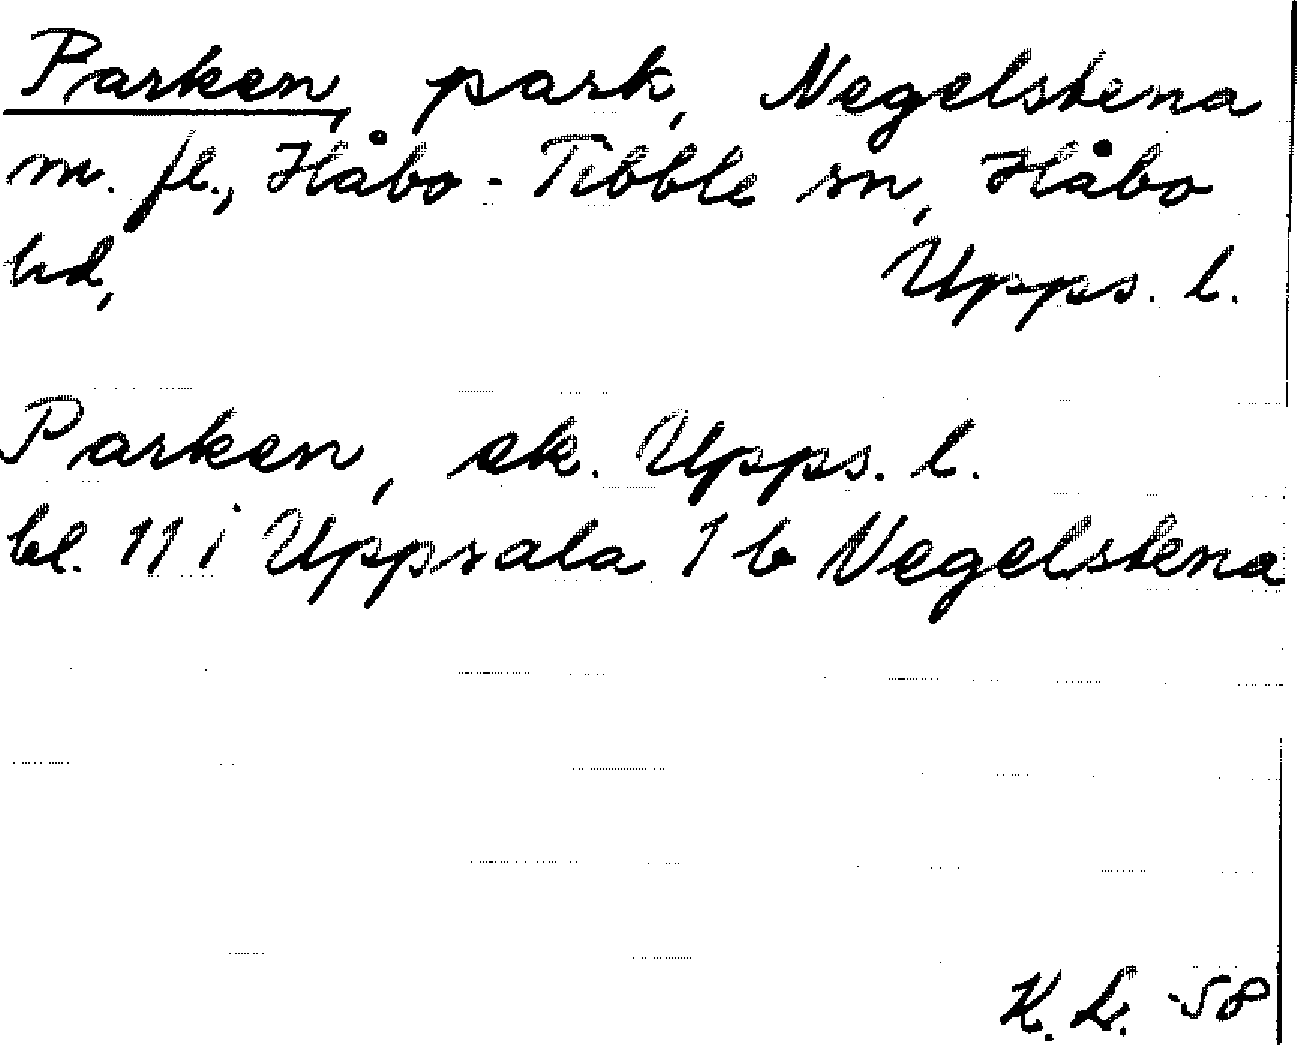 Parken, park, Negelstena
m. fl., Håbo-Tibble sn, Håbo
hd, Upps. l.
Parken, ek. Upps. l.
bl. 11 i Uppsala 1 b Negelstena
K. L. -58